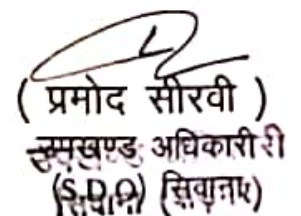 ( प्रमोद सीरवी )
उपखण्ड अधिकारी
(S.D.O) (सिवाना)